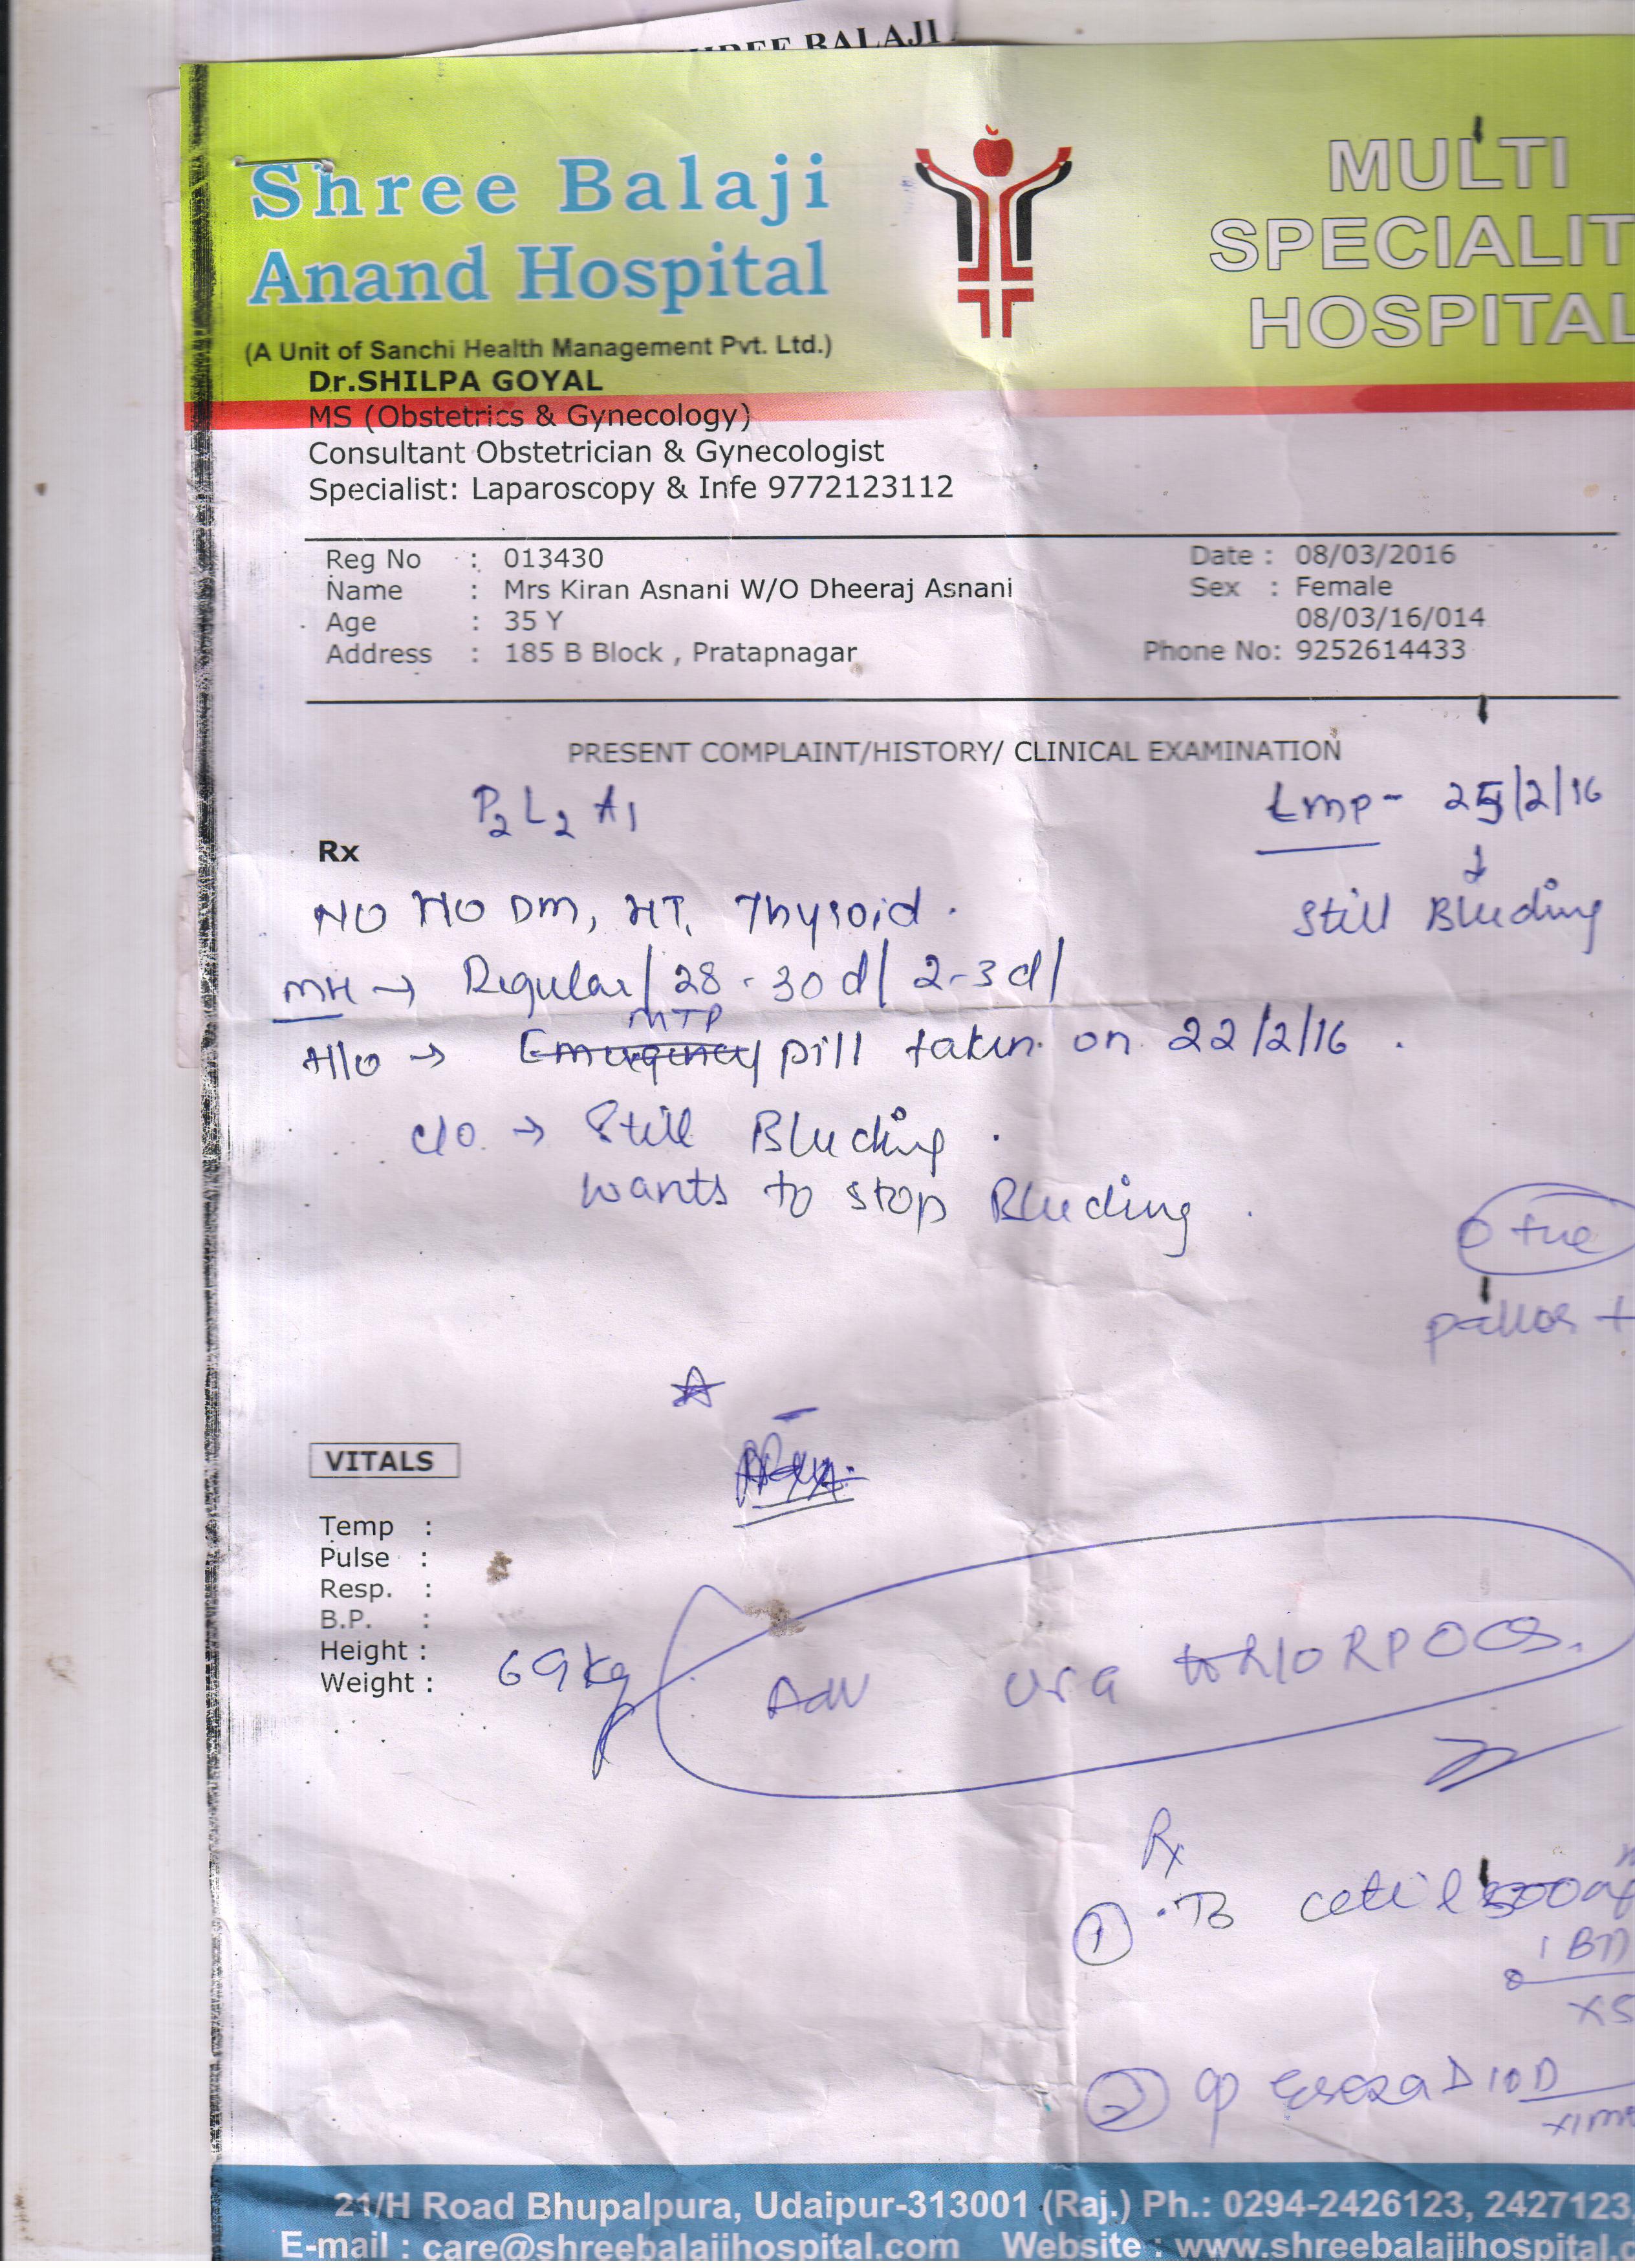 SHREE BALAJI
Shree Balaji
Anand Hospital
(A Unit of Sanchi Health Management Pvt. Ltd.)
MULTI
SPECIALIT
HOSPITAL
Dr.SHILPA GOYAL
MS (Obstetrics & Gynecology)
Consultant Obstetrician & Gynecologist
Specialist: Laparoscopy & Infe 9772123112
Reg No : 013430 Date : 08/03/2016
Name : Mrs Kiran Asnani W/O Dheeraj Asnani Sex : Female
Age : 35 Y 08/03/16/014
Address : 185 B Block , Pratapnagar Phone No: 9252614433
PRESENT COMPLAINT/HISTORY/ CLINICAL EXAMINATION
P2 L2 A1 Lmp - 25/2/16
Rx
↓
NO H/O DM, HT, Thyroid. Still Bleeding
MH → Regular/ 28-30d/ 2-3d/
MTP
H/o → Emergency pill taken on 22/2/16.
c/o → Still Bleeding.
wants to stop Bleeding.
pallor +
VITALS
Temp :
Pulse :
Resp. :
B.P. :
Height :
Weight : 69kg
Adv USG R/O RPOCS.
Rx
① Tb cetil 500
1 BD
x5
② Cp D 10D
21/H Road Bhupalpura, Udaipur-313001 (Raj.) Ph.: 0294-2426123, 2427123,
E-mail : care@shreebalajihospital.com Website : www.shreebalajihospital.c